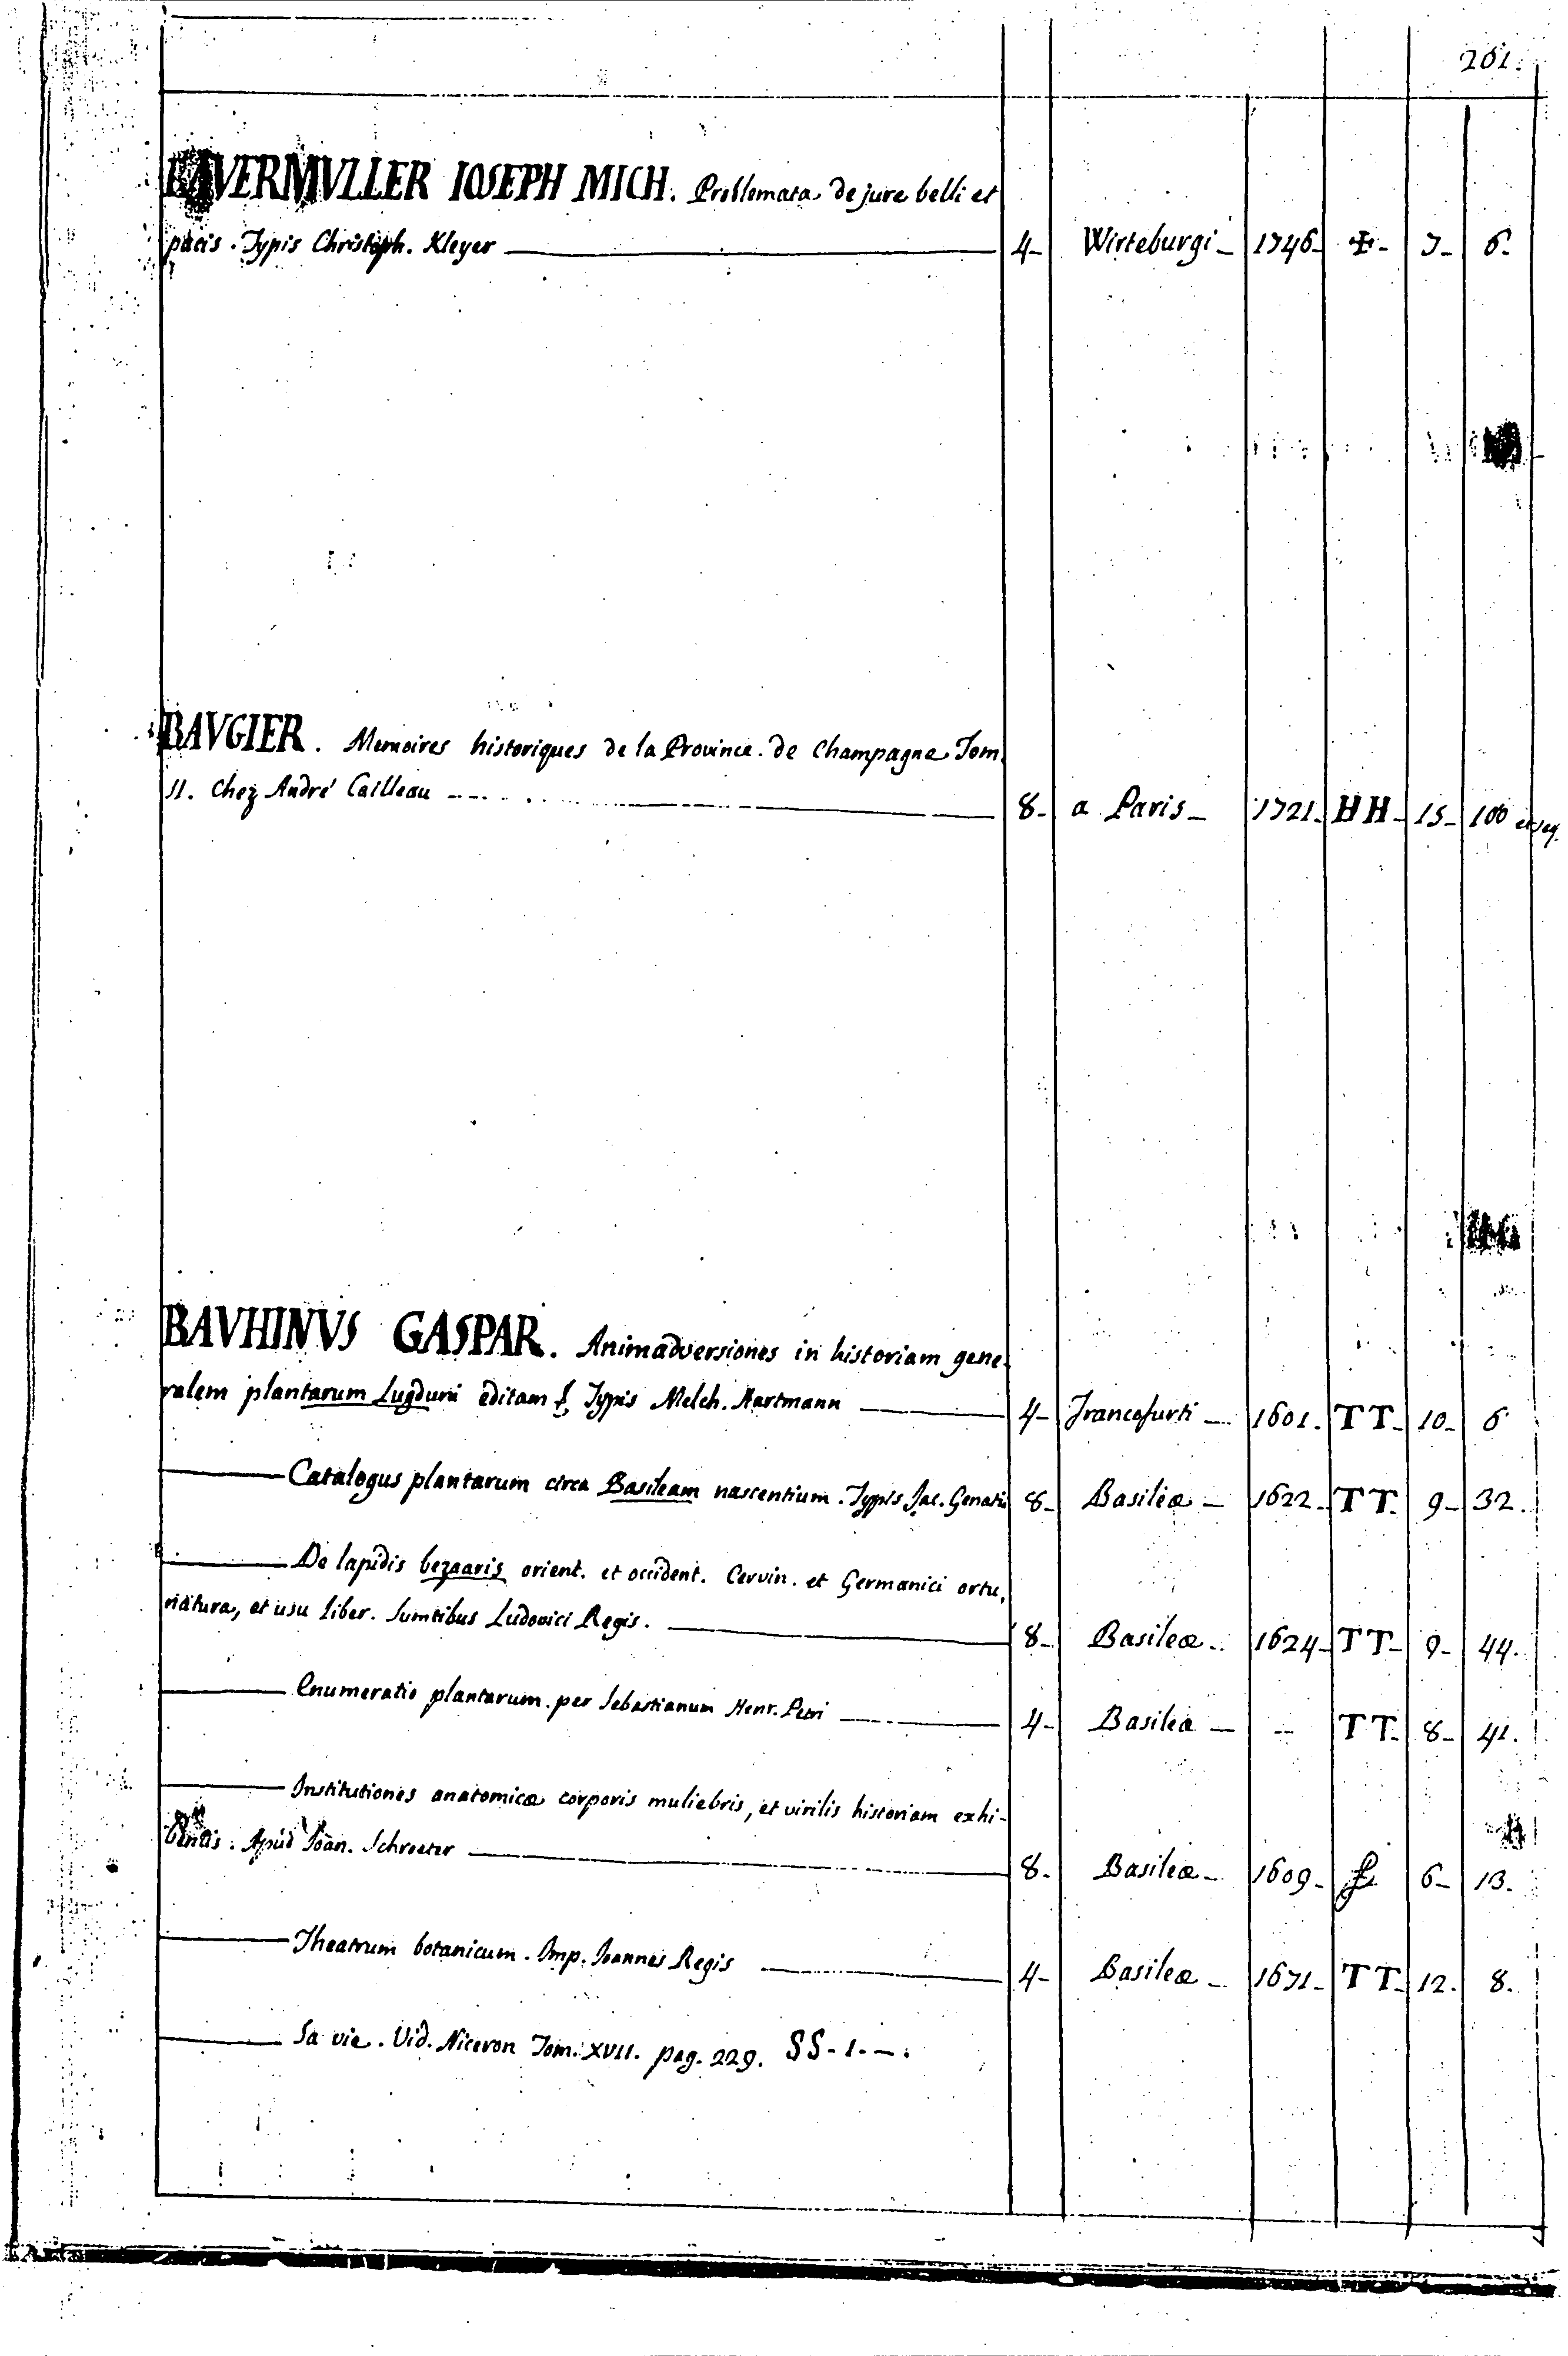 261.
BAVERMVLLER IOSEPH MICH. Problemata de jure belli et
pacis. Typis Christoph. Kleyer — 4- Wirteburgi - 1746- ✠- 7- 6-
BAVGIER. Memoires historiques de la Province de Champagne Tom.
II. Chez André Cailleau — 8- a Paris - 1721- HH- 15- 100 et seq.
BAVHINVS GASPAR. Animadversiones in historiam gene-
ralem plantarum Lugduni editam Typis Melch. Hartmann — 4- Francofurti - 1601. TT- 10- 6
— Catalogus plantarum circa Basileam nascentium. Typis Jac. Genatii 8- Basileæ - 1622- TT- 9- 32.
— De lapidis bezaaris orient. et occident. Cervin. et Germanici ortu,
natura, et usu liber. Sumtibus Ludovici Regis. — 8- Basileæ - 1624- TT- 9- 44.
— Enumeratio plantarum. per Sebastianum Henr. Petri — 4- Basilea - -- TT- 8- 41.
— Institutiones anatomicæ corporis muliebris, et virilis historiam exhi-
bentis. Apud Joan. Schroeter — 8- Basileæ - 1609- 6- 13.
— Theatrum botanicum. Imp. Joannes Regis — 4- Basileæ - 1671- TT- 12. 8.
— Sa vie. Vid. Niceron Tom. XVII. pag. 229. SS-1.-.